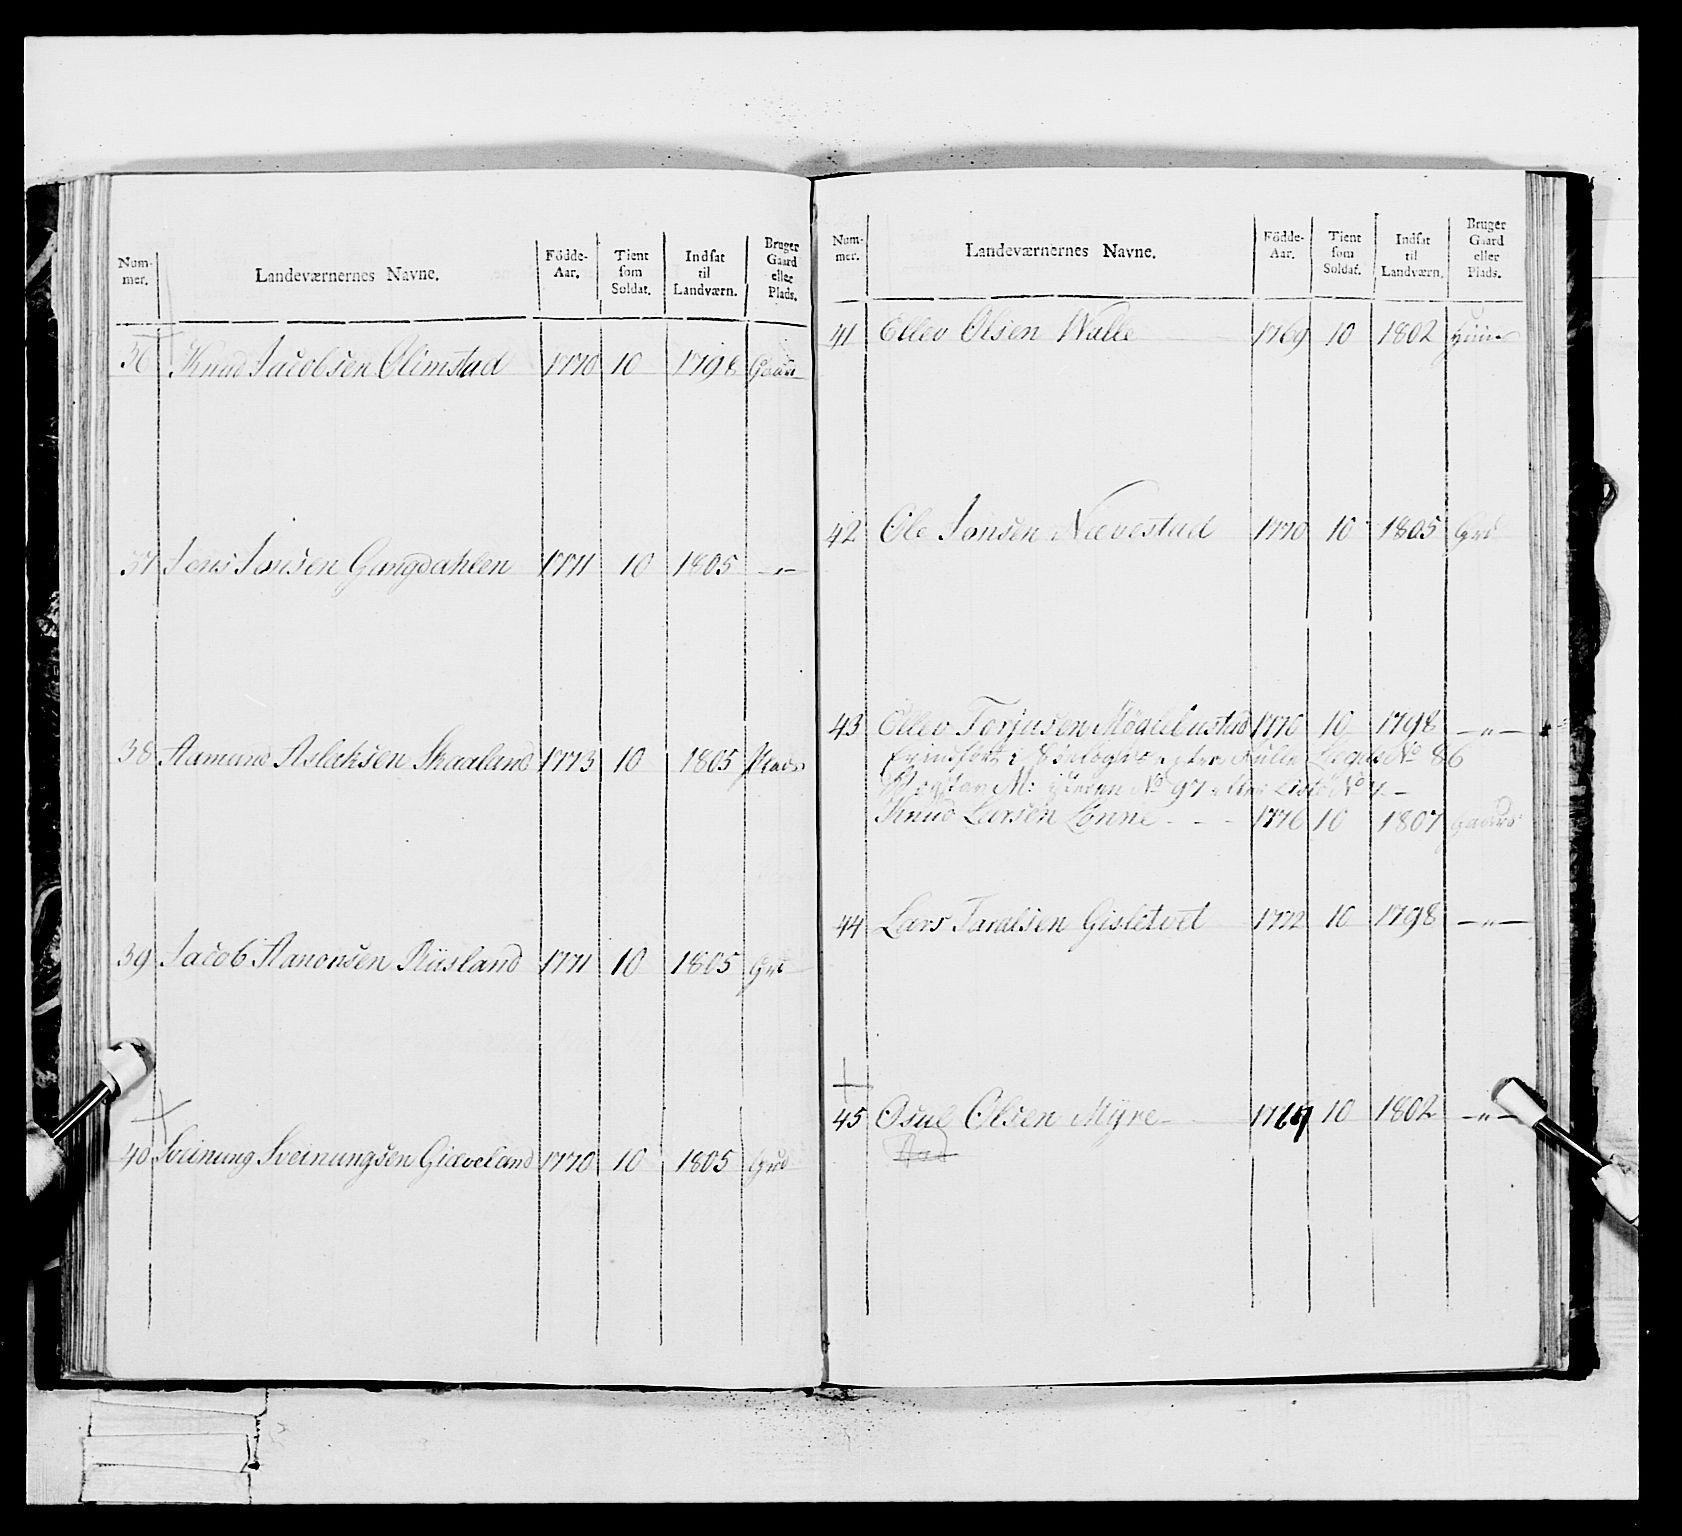 Num-
mer.
Landeværnernes Navne.
Födde-
Aar.
Tient
som
Soldat.
Indsat
til
Landværn.
Bruger
Gaard
eller
Plads.
36 Knud Jacobsen Olimstad 1770 10 1798
37 Jens Jensen Gangdahlen 1771 10 1805 —"—
38 Aamund Aslaksen Skaaland 1773 10 1805 Plads
39 Jacob Aanonsen Riisland 1771 10 1805 Grd
40 Sveinung Sveinungsen Giæveland 1770 10 1805 Grd
Num-
mer.
Landeværnernes Navne.
Födde-
Aar.
Tient
som
Soldat.
Indsat
til
Landværn.
Bruger
Gaard
eller
Plads.
41 Ellev Olsen Walle 1769 10 1802
42 Ole Jensen Nævestad 1770 10 1805 Grd
43 Ellev Torjusen Mögelbustad 1770 10 1798 —"—
Er indsatt i No 86
M: No 97 No 4 —
Knud Larsen Lönne - - - 1776 10 1807
44 Lars Taralsen Gisletvet 1772 10 1798 —"—
45 Osul Olsen Myre 1767 10 1802 —"—